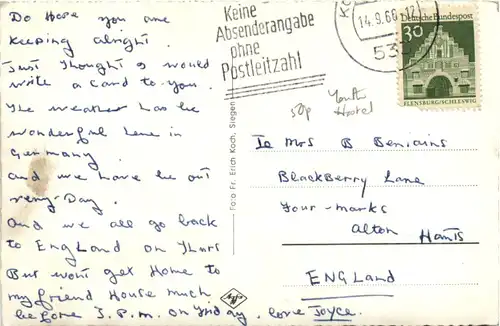 Do Hope you are
keeping alright.
Just Thought I would
write a card to you.
The weather has be
wonderful here in
Germany.
and we have be out
very-Day.
And we all go back
to England on Thurs
But wont get Home to
my friend House much
before 3.P.M. on Friday. love Joyce.
Keine
Absenderangabe
ohne
Postleitzahl
14.9.66-12
53
Deutsche Bundespost
30
FLENSBURG/SCHLESWIG
50p
Youth
Hostel
Foto Fr. Erich Koch, Siegen
To Mrs B Beniains
BlackBerry Lane
Four-marks
Alton Hants
ENGLAND
Agfa